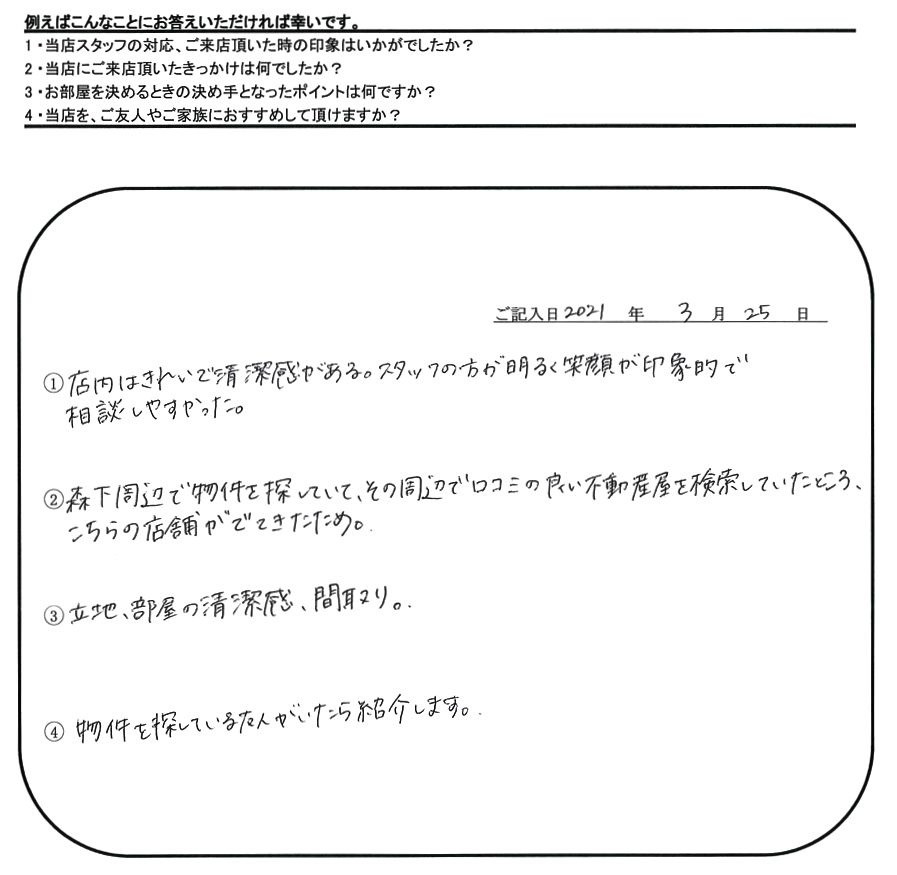 例えばこんなことにお答えいただければ幸いです。
1・当店スタッフの対応、ご来店頂いた時の印象はいかがでしたか？
2・当店にご来店頂いたきっかけは何でしたか？
3・お部屋を決めるときの決め手となったポイントは何ですか？
4・当店を、ご友人やご家族におすすめして頂けますか？
ご記入日2021 年 3 月 25 日
①店内はきれいで清潔感がある。スタッフの方が明るく笑顔が印象的で
相談しやすかった。
②森下周辺で物件を探していて、その周辺で口コミの良い不動産屋を検索していたところ、
こちらの店舗がでてきたため。
③立地、部屋の清潔感、間取り。
④物件を探している友人がいたら紹介します。